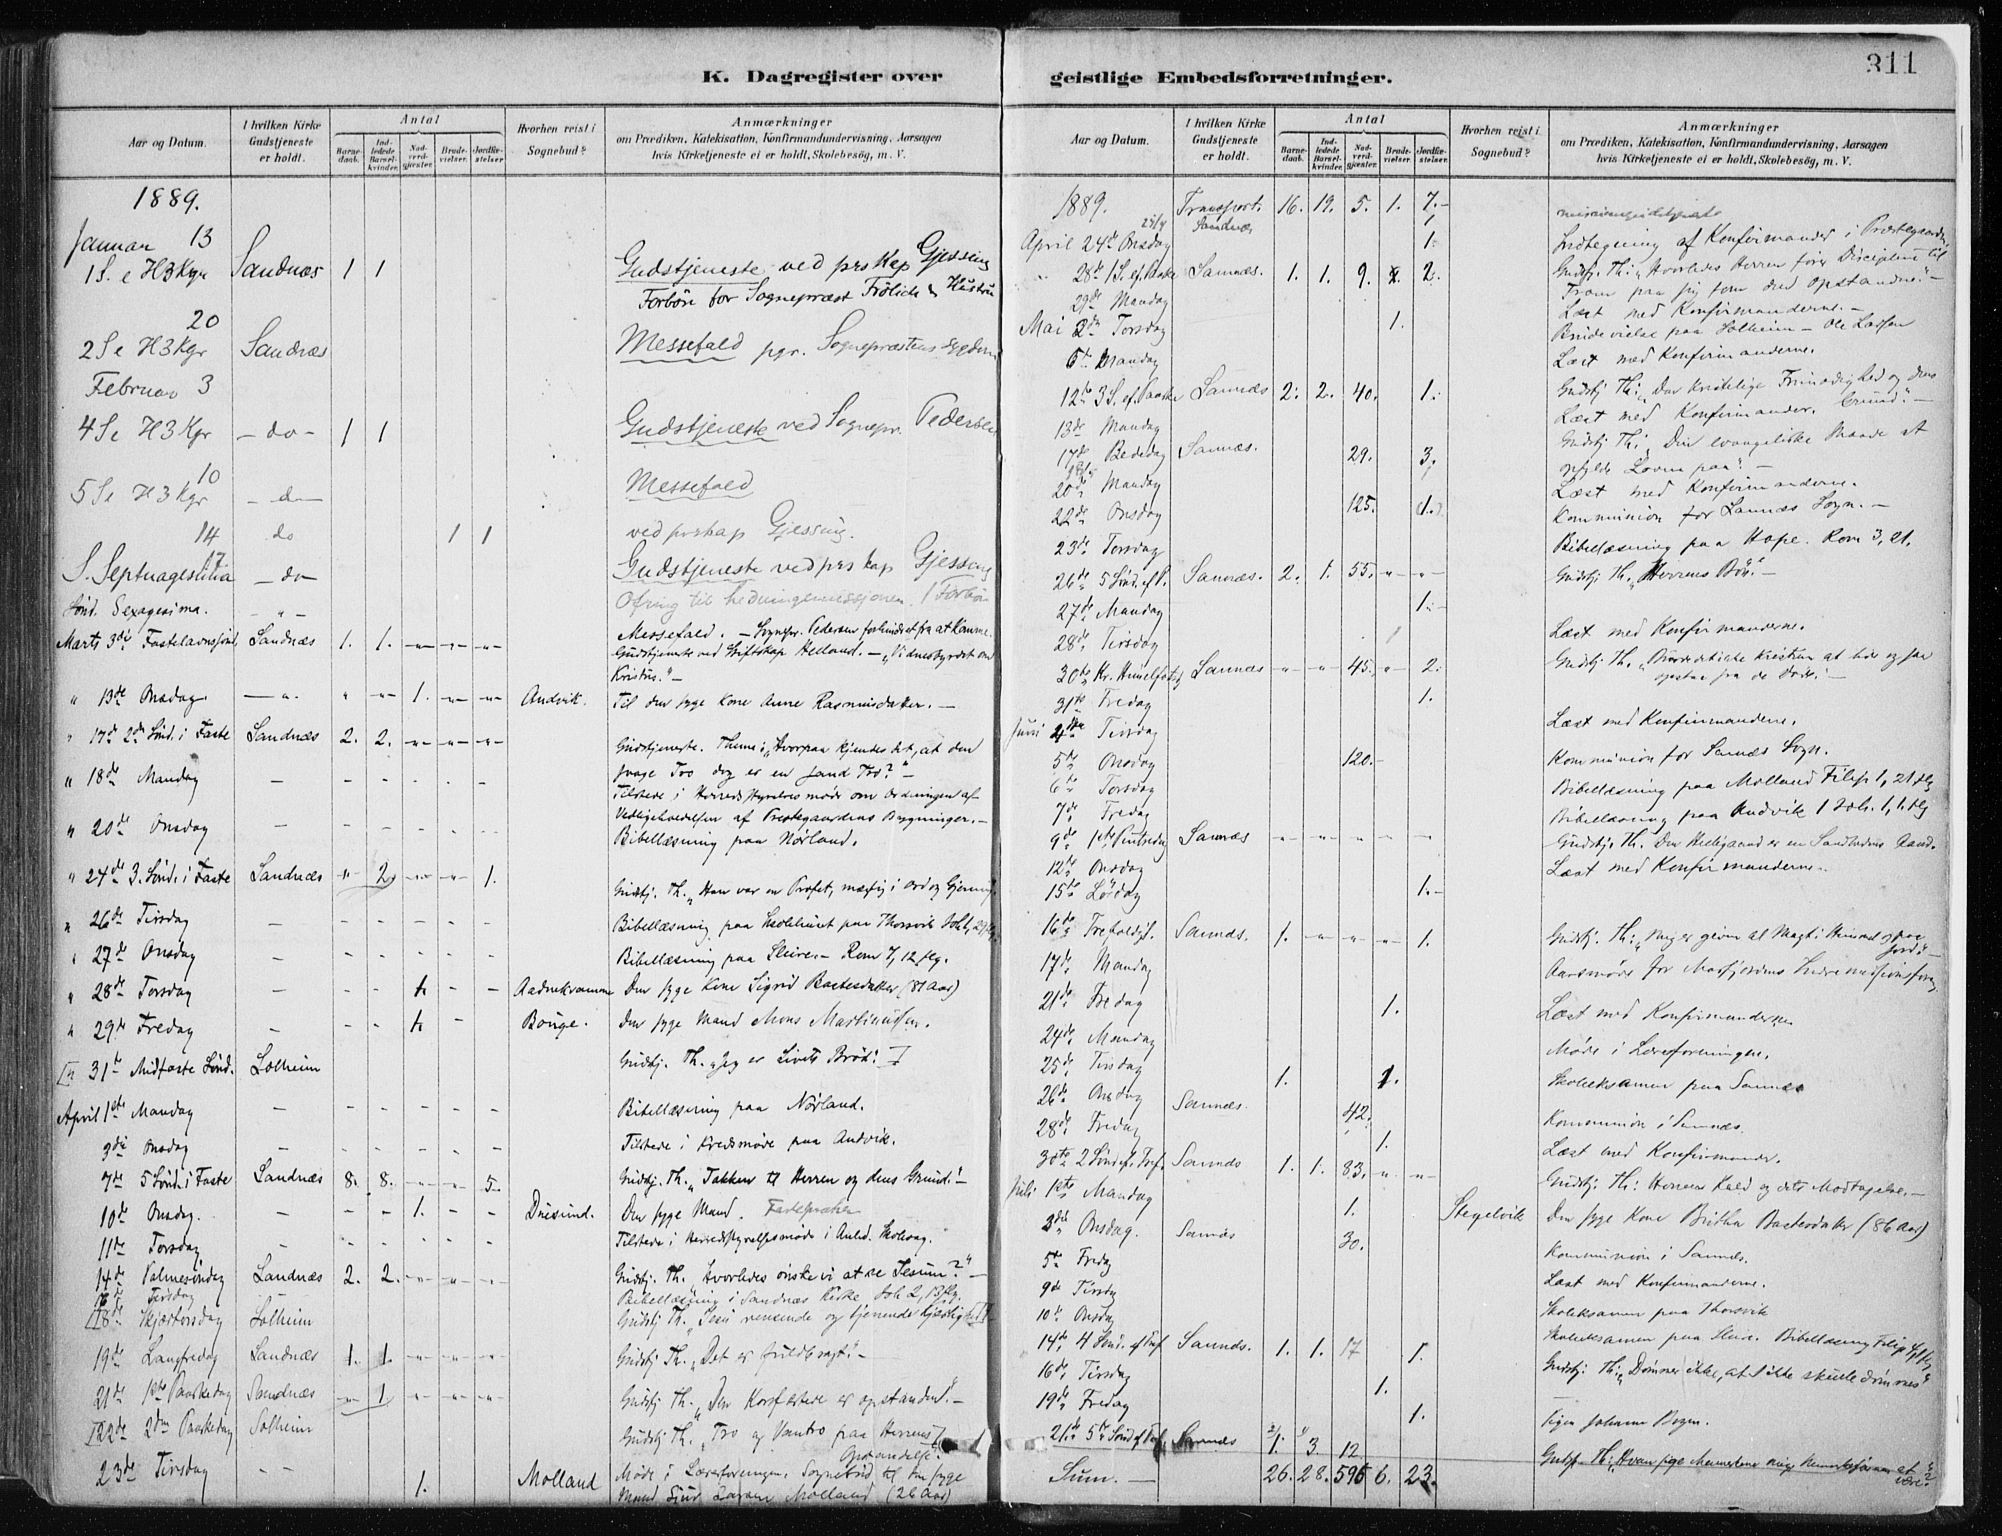 311
K. Dagregister over geistlige Embedsforretninger.
Aar og Datum. I hvilken Kirke Gudstjeneste er holdt. Antal Barnedaab. Indledede Barselkvinder. Nadverdgjester. Brudevielser. Jordfæstelser. Hvorhen reist i Sognebud? Anmærkninger om Prædiken, Katekisation, Konfirmandundervisning, Aarsagen hvis Kirketjeneste ei er holdt, Skolebesøg, m. V.
1889.
Januar 13
1 S. e H3Kgr Sandnæs 1 1 Gudstjeneste ved prs kap Gjessing
Forbøn for Sognepræst Frölich & Hustru
20
2 S e H3Kgr Sandnæs Messefald pgr. Sognepræstens Sygdom
Februar 3
4 S e H3Kgr – do – 1 1 Gudstjeneste ved Sognepr. Pedersen
10
5 S e H3Kgr – do – Messefald
14 do 1 1 ved perskap Gjessing.
S. Septuagesima 17 – do – Gudstjeneste ved prs kap Gjessing
Ofring til hedningemissjonen. / Forbøn
Sönd. Sexagesima. – " – Messefald. – Sognepr. Pedersen forhindret fra at komme.
Marts 3die Fastelavnssønd. Sandnæs 1. 1. Gudstjeneste ved Stiftskap Helland. – "Vidnesbyrdet om
Kristus." –
" 13de Onsdag. 1. Andvik. Til den syge Kone Anne Rasmusdatter. –
" 17de 2den Sönd. i Faste Sandnæs 2. 2. Gudstjeneste. Thema: "Hvorpaa kjendes det, at den
svage Tro dog er en sand Tro?" –
" 18de Mandag Tilstede i Herredsstyrelsesmøde om Ordningen af
Vedligeholdelsen af Præstegaardens Bygninger. –
" 20de Onsdag Bibellæsning paa Nørland.
" 24de 3. Sönd. i Faste Sandnæs " 2. 1. Gudstj. Th. "Han var en Profet, mægtig i Ord og Gjerning"
" 26de Tirsdag Bibellæsning paa Skolehuset paa Thorsvik Joh 1, 29 flg.
" 27de Onsdag Bibellæsning paa Sleire. – Rom 7, 12 flg.
" 28de Torsdag 1. Aadnekvamme Den syge Kone Sigrid Bastesdatter (81 Aar)
" 29de Fredag 1. Bouge. Den syge Mand Mons Martinussen.
" 31te Midfaste Sönd. Solheim Gudstj. Th. "Jeg er Livets Brød."
April 1ste Mandag Bibellæsning paa Nørland.
3die Onsdag Tilstede i Kredsmøde paa Andvik.
7de 5 Sönd. i Faste Sandnæs 8. 8. 5. Gudstj. Th. "Takken til Herren og dens Grund." –
10de Onsdag. 1. Duesund. Den syge Mand.
11te Torsdag Tilstede i Herredsstyrelsesmøde i Anl. Skolesag.
14de Palmesøndag Sandnæs 2. 2. Gudstj. Th. "Hvorledes ønske vi at se Jesum?" –
16de Tirsdag Bibellæsning i Sandnæs Kirke Joh 2, 13 flg.
18de Skjærtorsdag Solheim Gudstj. Th. "Jesu rensende og tjenende Kjærlighed"
19de Langfredag Sandnæs 1. 1. Gudstj. Th. "Det er fuldbragt." –
21de 1ste Paaskedag Sandnæs " 1 Gudstj. Th. "Den Korsfæstede er opstanden." –
22de 2den Paaskedag Solheim Gudstj. Th. "Tro og Vantro paa Herrens
Opstandelse."
23de Tirsdag 1. Molland Møde i Lærerforeningen. Sognebud til den syge
Mand Sjur Larsen Molland (26 Aar)
Aar og Datum. I hvilken Kirke Gudstjeneste er holdt. Antal Barnedaab. Indledede Barselkvinder. Nadverdgjester. Brudevielser. Jordfæstelser. Hvorhen reist i Sognebud? Anmærkninger om Prædiken, Katekisation, Konfirmandundervisning, Aarsagen hvis Kirketjeneste ei er holdt, Skolebesøg, m. V.
1889. Transport. 16. 19. 5. 1. 7. –
Sandnæs 1
April 24de Onsdag 1. Indtegning af Konfirmander i Præstegaarden.
" 28de 1 S. ef. Paaske Sannæs. 1. 1. 9. 2. Gudstj. Th: "Hvorledes Herren fører Disciplene til
Troen paa sig som den opstandne." –
29de Mandag Læst med Konfirmanderne. –
Mai 2den Torsdag 1. Brudevielse paa Solheim – Ole Lassen
6te Mandag Læst med Konfirmanderne.
12te 3 S. ef. Paaske Sannæs 2. 2. 40. 1. Gudstj Th: "Den kristelige Frimodighed og dens
Grund." –
13de Mandag Læst med Konfirmander.
17de Bededag Sannæs. 29. 3. Gudstj Th: "Den evangeliske Maade at
opfylde Loven paa." –
20de Mandag Læst med Konfirmanderne.
22de Onsdag 125. 1. Kommunion for Sannæs Sogn. –
23de Torsdag Bibellæsning paa Hope. Rom 3, 21.
26de 5 Sönd. ef P. Sannæs. 2. 1. 55. Gudstj Th. "Herrens Bøn." –
27de Mandag 1.
28de Tirsdag Læst med Konfirmanderne.
30te Kr. Himmelfartsd. Sannæs 45. 2.
31te Fredag 1.
Juni 4de Tirsdag Læst med Konfirmanderne.
5te Onsdag 120. Kommunion for Sannæs Sogn.
6te Torsdag Bibellæsning paa Molland Filip 1, 21 flg
7de Fredag Bibellæsning paa Andvik 1 Joh. 1, 1. flg
9de 1ste Pintsedag Sannæs Gudstj. Th. Den Helligaand er en Sandhedens Aand.
12te Onsdag Læst med Konfirmanderne.
15te Lørdag 1. –
16de Trefoldigh. Sannæs. 1. 1. Gudstj. Th: "Mig er given al Magt i Himmel og paa
Jord." –
17de Mandag Aarsmøde for Masfjordens Indremissionsforening
21de Fredag 1. Læst med Konfirmanderne
24de Mandag Møde i Lærerforeningen.
25de Tirsdag 1. 1. Skoleeksamen paa Sannæs
26de Onsdag Sannæs. 42. Kommunion i Sannæs.
28de Fredag 1. Læst med Konfirmander.
30te 2 Sönd. ef. Tref. Sannæs 1. 1. 83. Gudstj Th: Herrens Kald og dets Modtagelse. –
Juli 1ste Mandag 1. Stegelvik Den syge Kone Britha Bastesdatter (86 Aar)
3die Onsdag. Sannæs 30. Kommunion i Sannæs.
5te Fredag Læst med Konfirmanderne.
9de Tirsdag Skoleeksamen paa Thorsvik
10de Onsdag Skoleeksamen paa Sleire. Bibellæsning Filip
14de 4 Sönd. ef Tref Sannæs. 1. 1. 17 1. Gudstj Th: "Dømmer ikke, at I ikke skulle dømmes"
16de Tirsdag 1.
19de Fredag 1.
21de 5te Sönd ef Tref. Sannæs 1. 3. 12
Sum. – 26. 28. 596 6. 23.